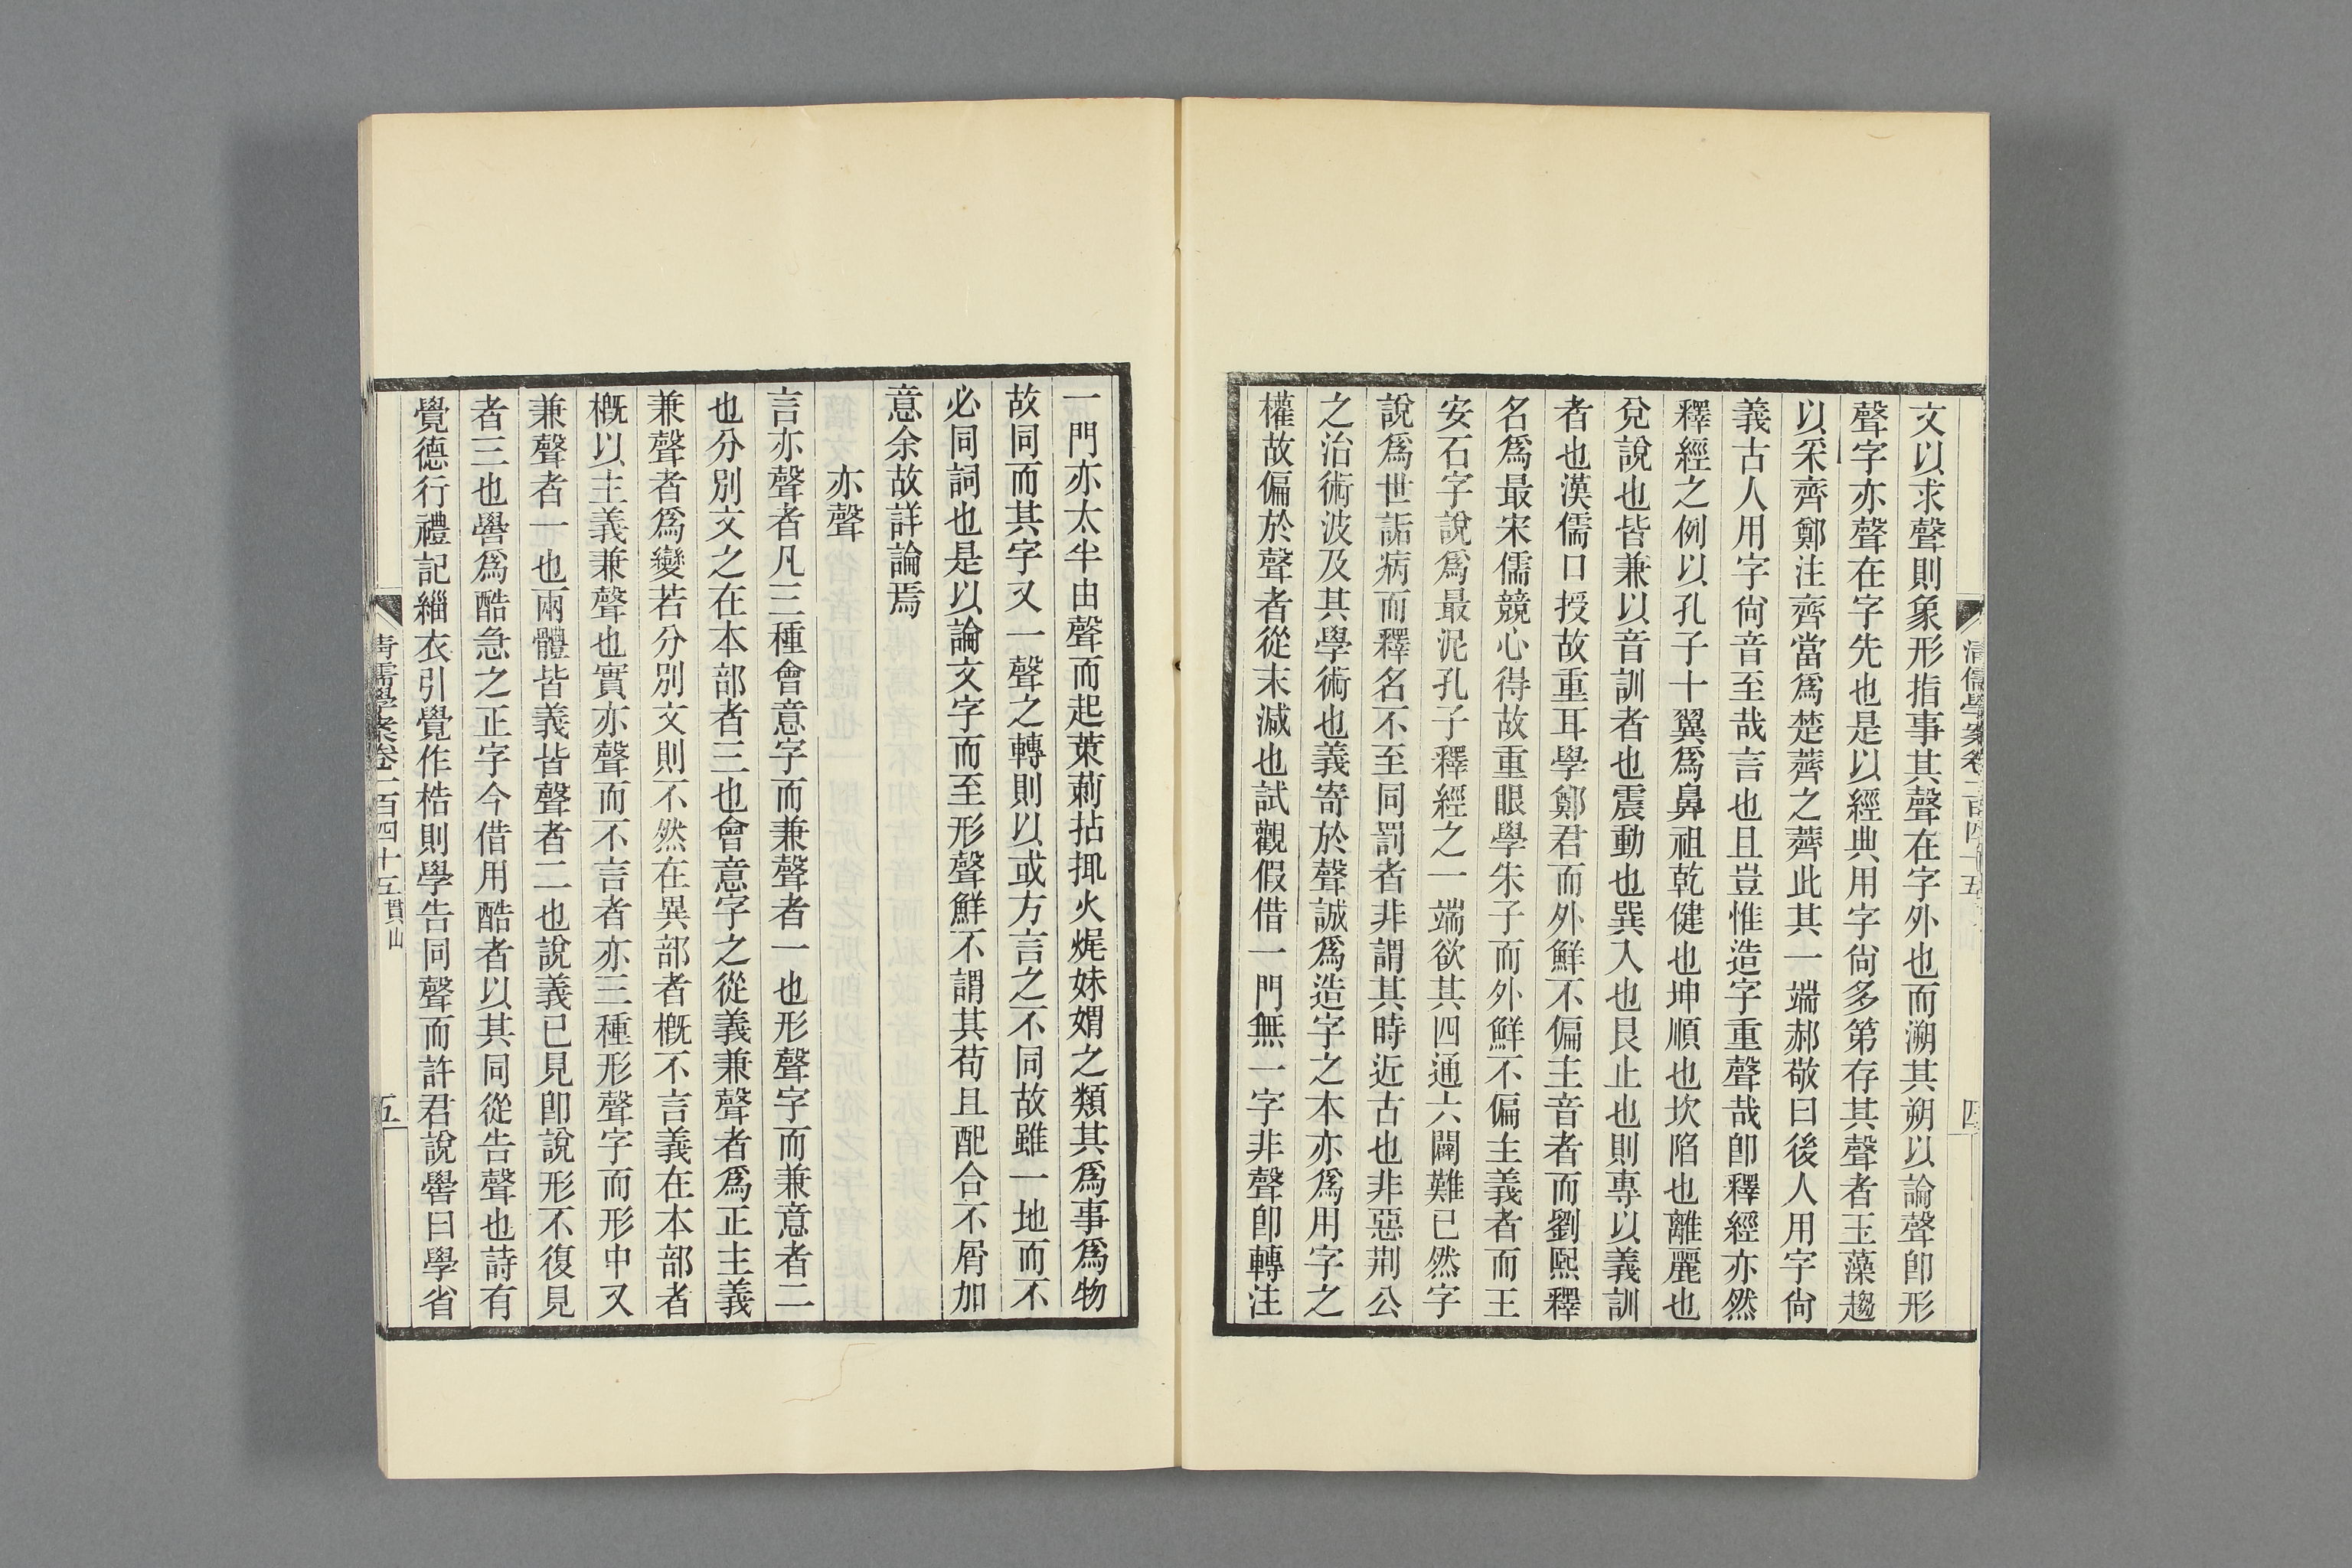 文以求聲則象形指事其聲在字外也而溯其朔以論聲卽形
聲字亦聲在字先也是以經典用字尙多第存其聲者玉藻趨
以采齊鄭注齊當爲楚薺之薺此其一端郝敬曰後人用字尙
義古人用字尙音至哉言也且豈惟造字重聲哉卽釋經亦然
釋經之例以孔子十翼爲鼻祖乾健也坤順也坎陷也離麗也
兌說也皆兼以音訓者也震動也巽入也艮止也則專以義訓
者也漢儒口授故重耳學鄭君而外鮮不偏主音者而劉熙釋
名爲最宋儒競心得故重眼學朱子而外鮮不偏主義者而王
安石字說爲最泥孔子釋經之一端欲其四通六闢難已然字
說爲世詬病而釋名不至同罰者非謂其時近古也非惡荆公
之治術波及其學術也義寄於聲誠爲造字之本亦爲用字之
權故偏於聲者從末減也試觀假借一門無一字非聲卽轉注
清儒學案卷一百四十五
四
一門亦太半由聲而起茦莿拈挕火焜妹媦之類其爲事爲物
故同而其字又一聲之轉則以或方言之不同故雖一地而不
必同詞也是以論文字而至形聲鮮不謂其苟且配合不屑加
意余故詳論焉
亦聲
言亦聲者凡三種會意字而兼聲者一也形聲字而兼意者二
也分別文之在本部者三也會意字之從義兼聲者爲正主義
兼聲者爲變若分別文則不然在異部者槪不言義在本部者
槪以主義兼聲也實亦聲而不言者亦三種形聲字而形中又
兼聲者一也兩體皆義皆聲者二也說義已見卽說形不復見
者三也嚳爲酷急之正字今借用酷者以其同從告聲也詩有
覺德行禮記緇衣引覺作梏則學告同聲而許君說嚳曰學省
清儒學案卷一百四十五 貫山
五